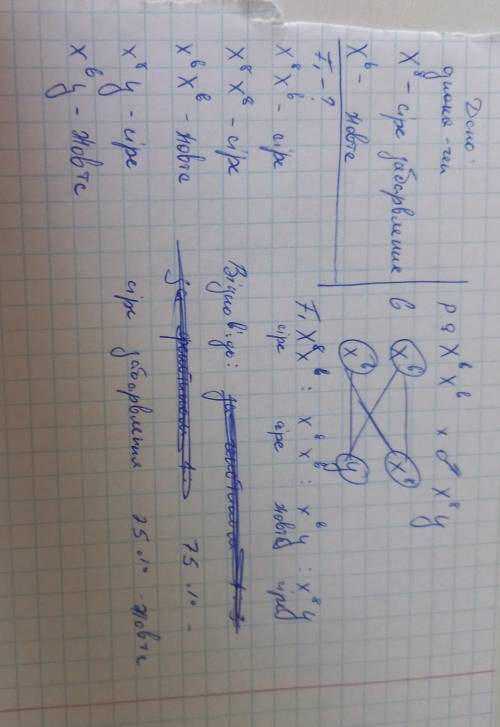 Дано:
X⁸ - сіре забарвлення
Xᵇ - жовте
F₁ - ?
X⁸ Xᵇ - сіре
X⁸ X⁸ - сіре
Xᵇ Xᵇ - жовте
X⁸ y - сіре
Xᵇ y - жовте
P ♀ Xᵇ Xᵇ x ♂ X⁸ y
Xᵇ X⁸
Xᵇ y
F₁ X⁸ Xᵇ : X⁸ Xᵇ : Xᵇ y : X⁸ y
сіре сіре жовте сіре
Відповідь:
75 % -
сіре забарвлення 25 % - жовте